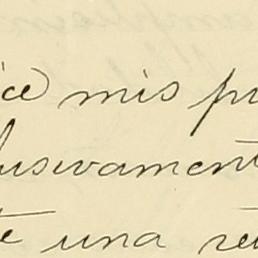 ice mis pr
lusivament
te una re